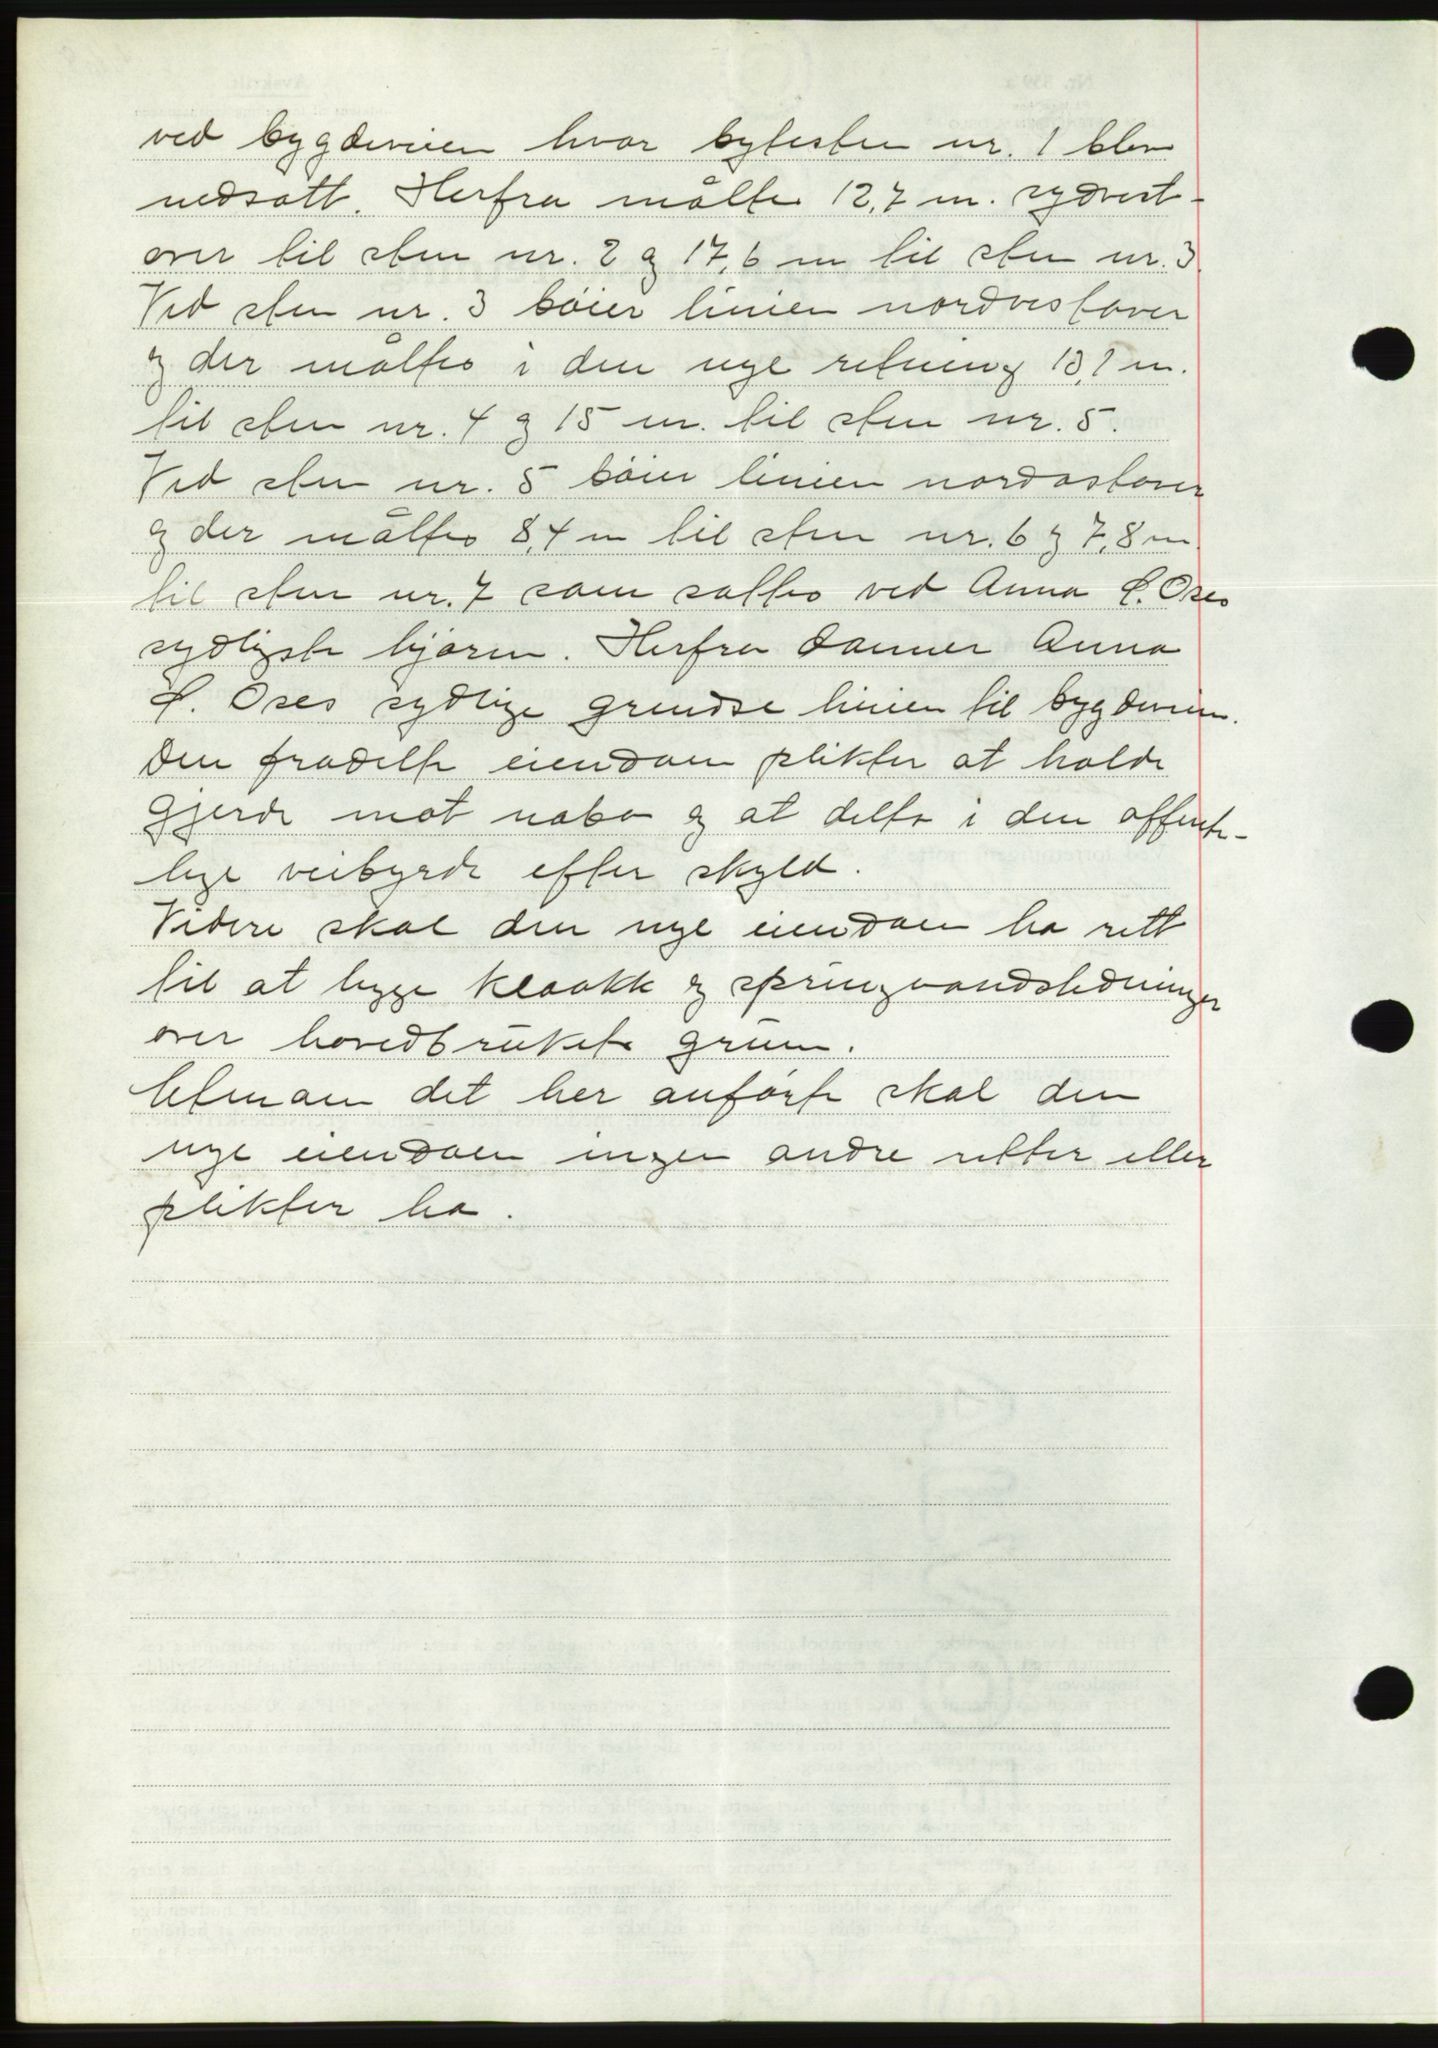 ved bygdeveien hvor bytesten nr. 1 blev
nedsatt. Herfra måltes 12,7 m. sydvest-
over til sten nr. 2 og 17,6 m til sten nr. 3.
Ved sten nr. 3 bøier linien nordvestover
og der måltes i den nye retning 13,1 m.
til sten nr. 4 og 15 m. til sten nr. 5.
Ved sten nr. 5 bøier linien nordostover
og der måltes 8,4 m til sten nr. 6 og 7,8 m
til sten nr. 7 som sattes ved Anna Oses
sydligste hjørne. Herfra danner Anna
Oses sydlige grendse linien til bygdeveien.
Den fradelte eiendom plikter at holde
gjerde mot nabo og at delta i den offent-
lige veibyrde efter skyld.
Videre skal den nye eiendom ha rett
til at legge kloakk og springvandsledninger
over hovedbrukets grunn.
Utenom det her anførte skal den
nye eiendom ingen andre retter eller
plikter ha.